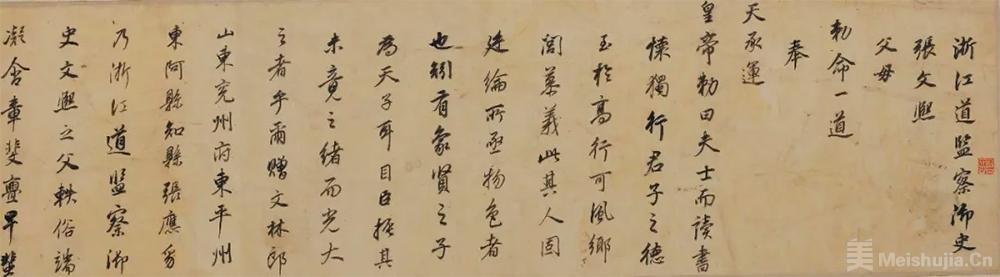 浙江道監察御史
張文熙
父母
勅命一道
奉
天承運
皇帝勅曰夫士而讀書
悚獨行君子之德
至於高行可風鄉
閭慕義此其人固
廷綸所亟物色者
也矧有象賢之子
為天子耳目臣振其
未竟之緒而光大
之者乎爾贈文林郎
山東兗州府東平州
東阿縣知縣張應
乃浙江道監察御
史文熙之父軼俗端
凝含章斐亹早
美 Meishujia.Cn